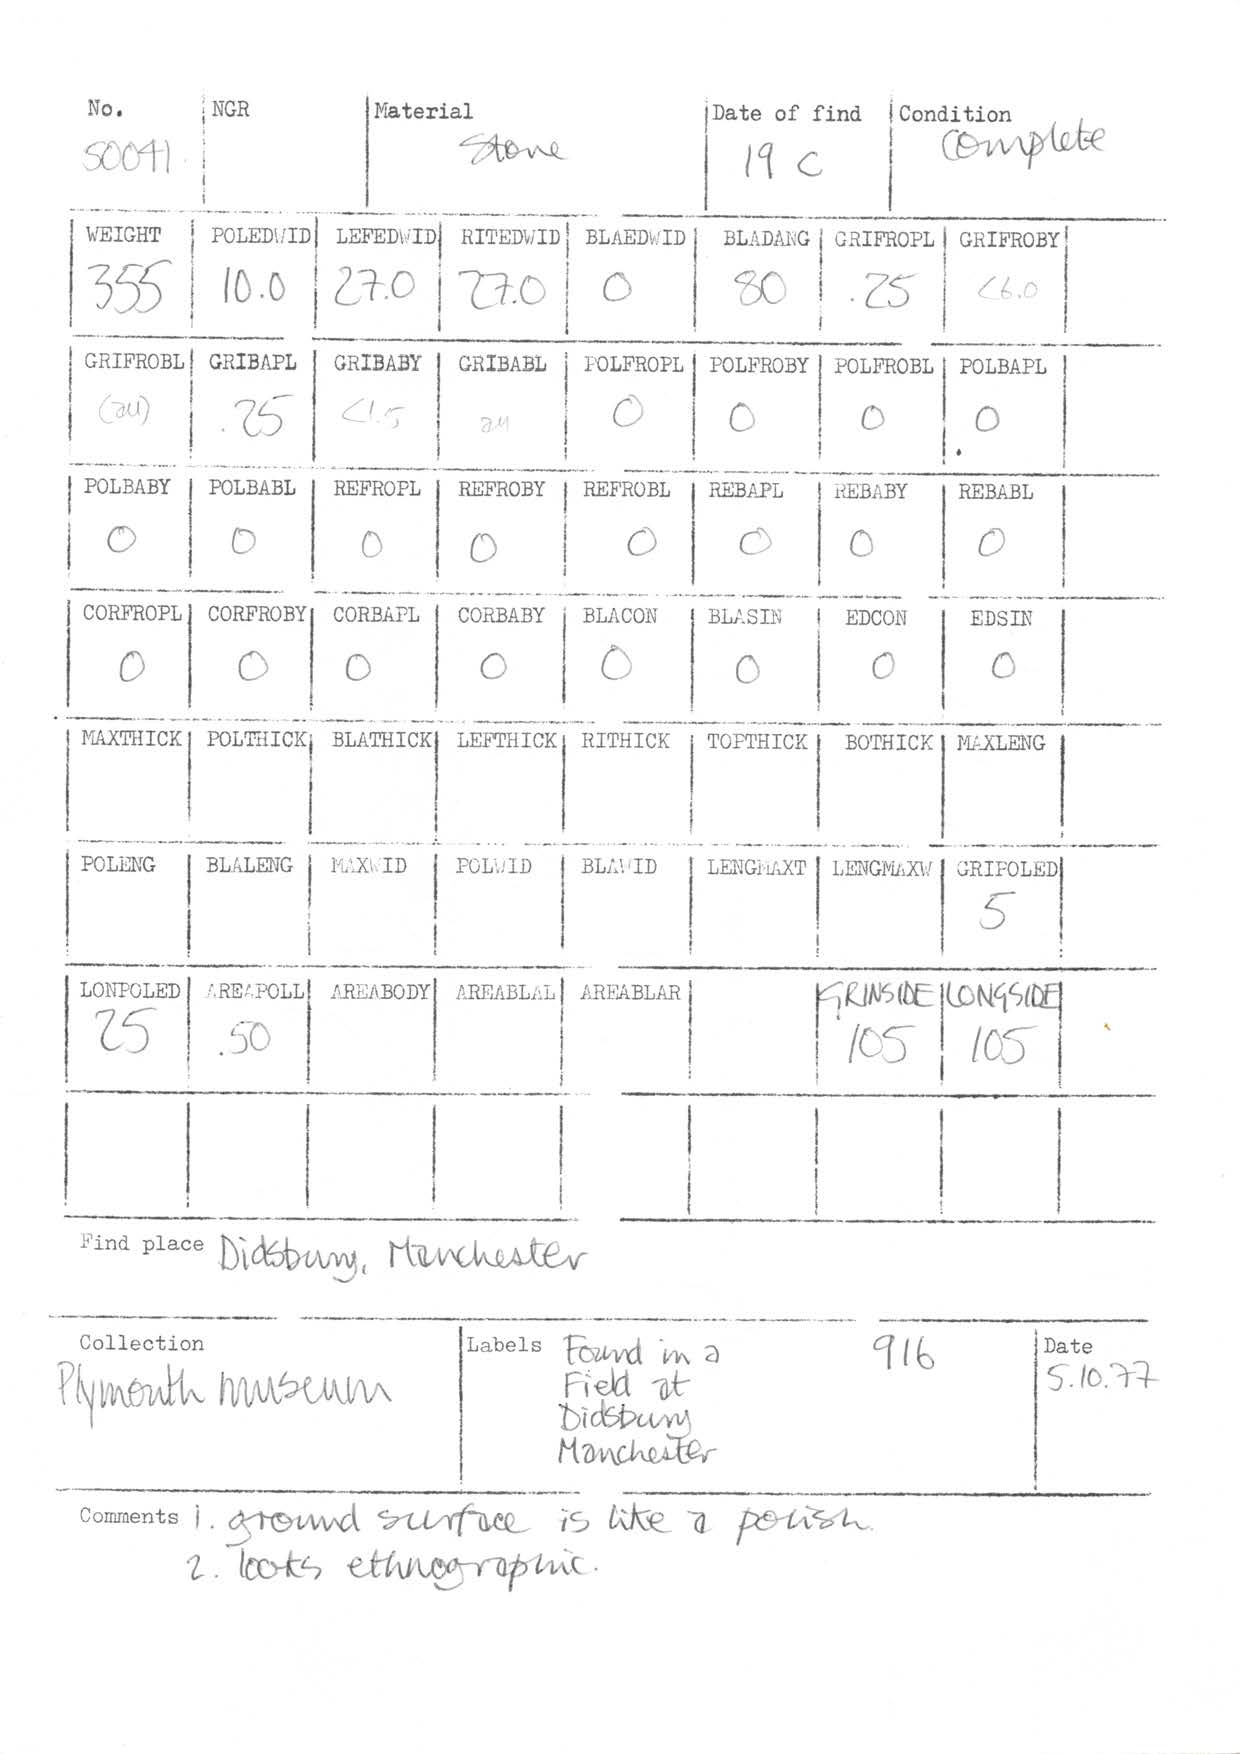 No. NGR Material Date of find Condition
S0041 Stone 19 C Complete
WEIGHT POLEDWID LEFEDWID RITEDWID BLAEDWID BLADANG GRIFROPL GRIFROBY
355 10.0 27.0 27.0 0 80 .25 <6.0
GRIFROBL GRIBAPL GRIBABY GRIBABL POLFROPL POLFROBY POLFROBL POLBAPL
(all) .25 <1.5 all 0 0 0 0
POLBABY POLBABL REFROPL REFROBY REFROBL REBAPL REBABY REBABL
0 0 0 0 0 0 0 0
CORFROPL CORFROBY CORBAPL CORBABY BLACON BLASIN EDCON EDSIN
0 0 0 0 0 0 0 0
MAXTHICK POLTHICK BLATHICK LEFTHICK RITHICK TOPTHICK BOTHICK MAXLENG
POLENG BLALENG MAXWID POLWID BLAWID LENGMAXT LENGMAXW GRIPOLED
5
LONPOLED AREAPOLL AREABODY AREABLAL AREABLAR GRINSIDE LONGSIDE
25 .50 105 105
Find place Didsbury, Manchester
Collection Labels Found in a 916 Date
Plymouth museum Field at 5.10.77
Didsbury
Manchester
Comments 1. ground surface is like a polish.
2. looks ethnographic.